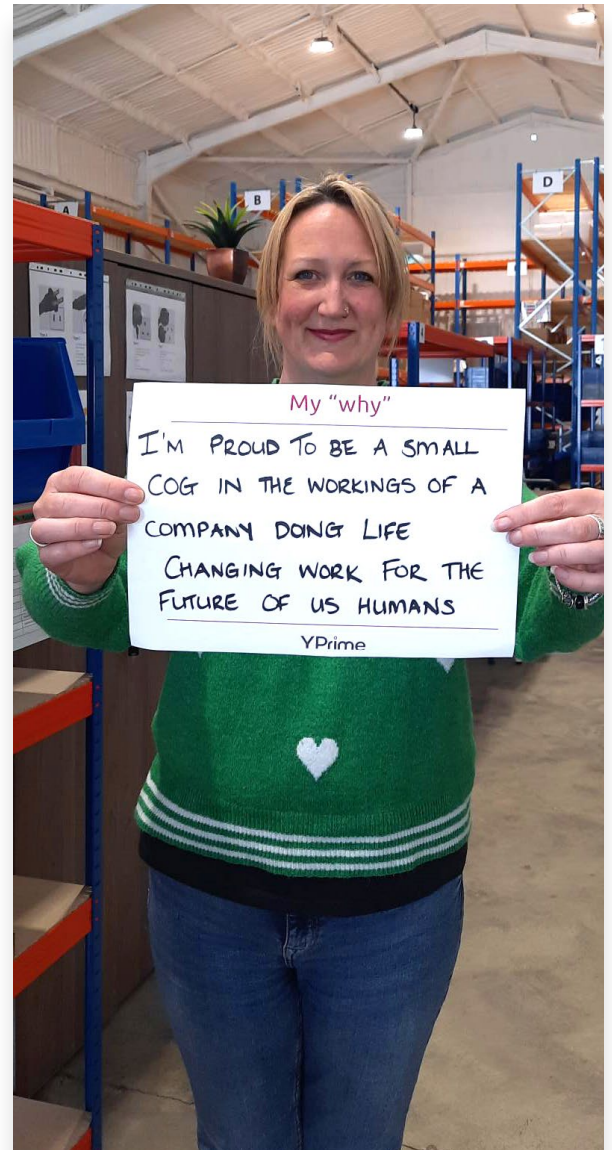 A
B
D
My “why”
I'M PROUD TO BE A SMALL
COG IN THE WORKINGS OF A
COMPANY DOING LIFE
CHANGING WORK FOR THE
FUTURE OF US HUMANS
YPrime